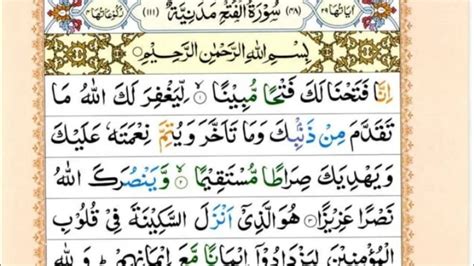 اٰیَاتُهَا ٢٩ (٤٨) سُوْرَةُ الْفَتْحِ مَدَنِیَّةٌ (١١١) رُكُوْعَاتُهَا ٤
بِسْمِ اللهِ الرَّحْمٰنِ الرَّحِیْمِ
اِنَّا فَتَحْنَا لَكَ فَتْحًا مُّبِیْنًا ۙ‏﴿١﴾ لِّیَغْفِرَ لَكَ اللهُ مَا
تَقَدَّمَ مِنْ ذَنْۢبِكَ وَمَا تَاَخَّرَ وَیُتِمَّ نِعْمَتَهٗ عَلَیْكَ
وَیَهْدِیَكَ صِرَاطًا مُّسْتَقِیْمًا ۙ﴿٢﴾ وَّیَنْصُرَكَ اللهُ
نَصْرًا عَزِیْزًا ﴿٣﴾ هُوَ الَّذِیْۤ اَنْزَلَ السَّكِیْنَةَ فِیْ قُلُوْبِ
الْمُؤْمِنِیْنَ لِیَزْدَادُوْۤا اِیْمَانًا مَّعَ اِیْمَانِهِمْ ؕ وَلِلهِ